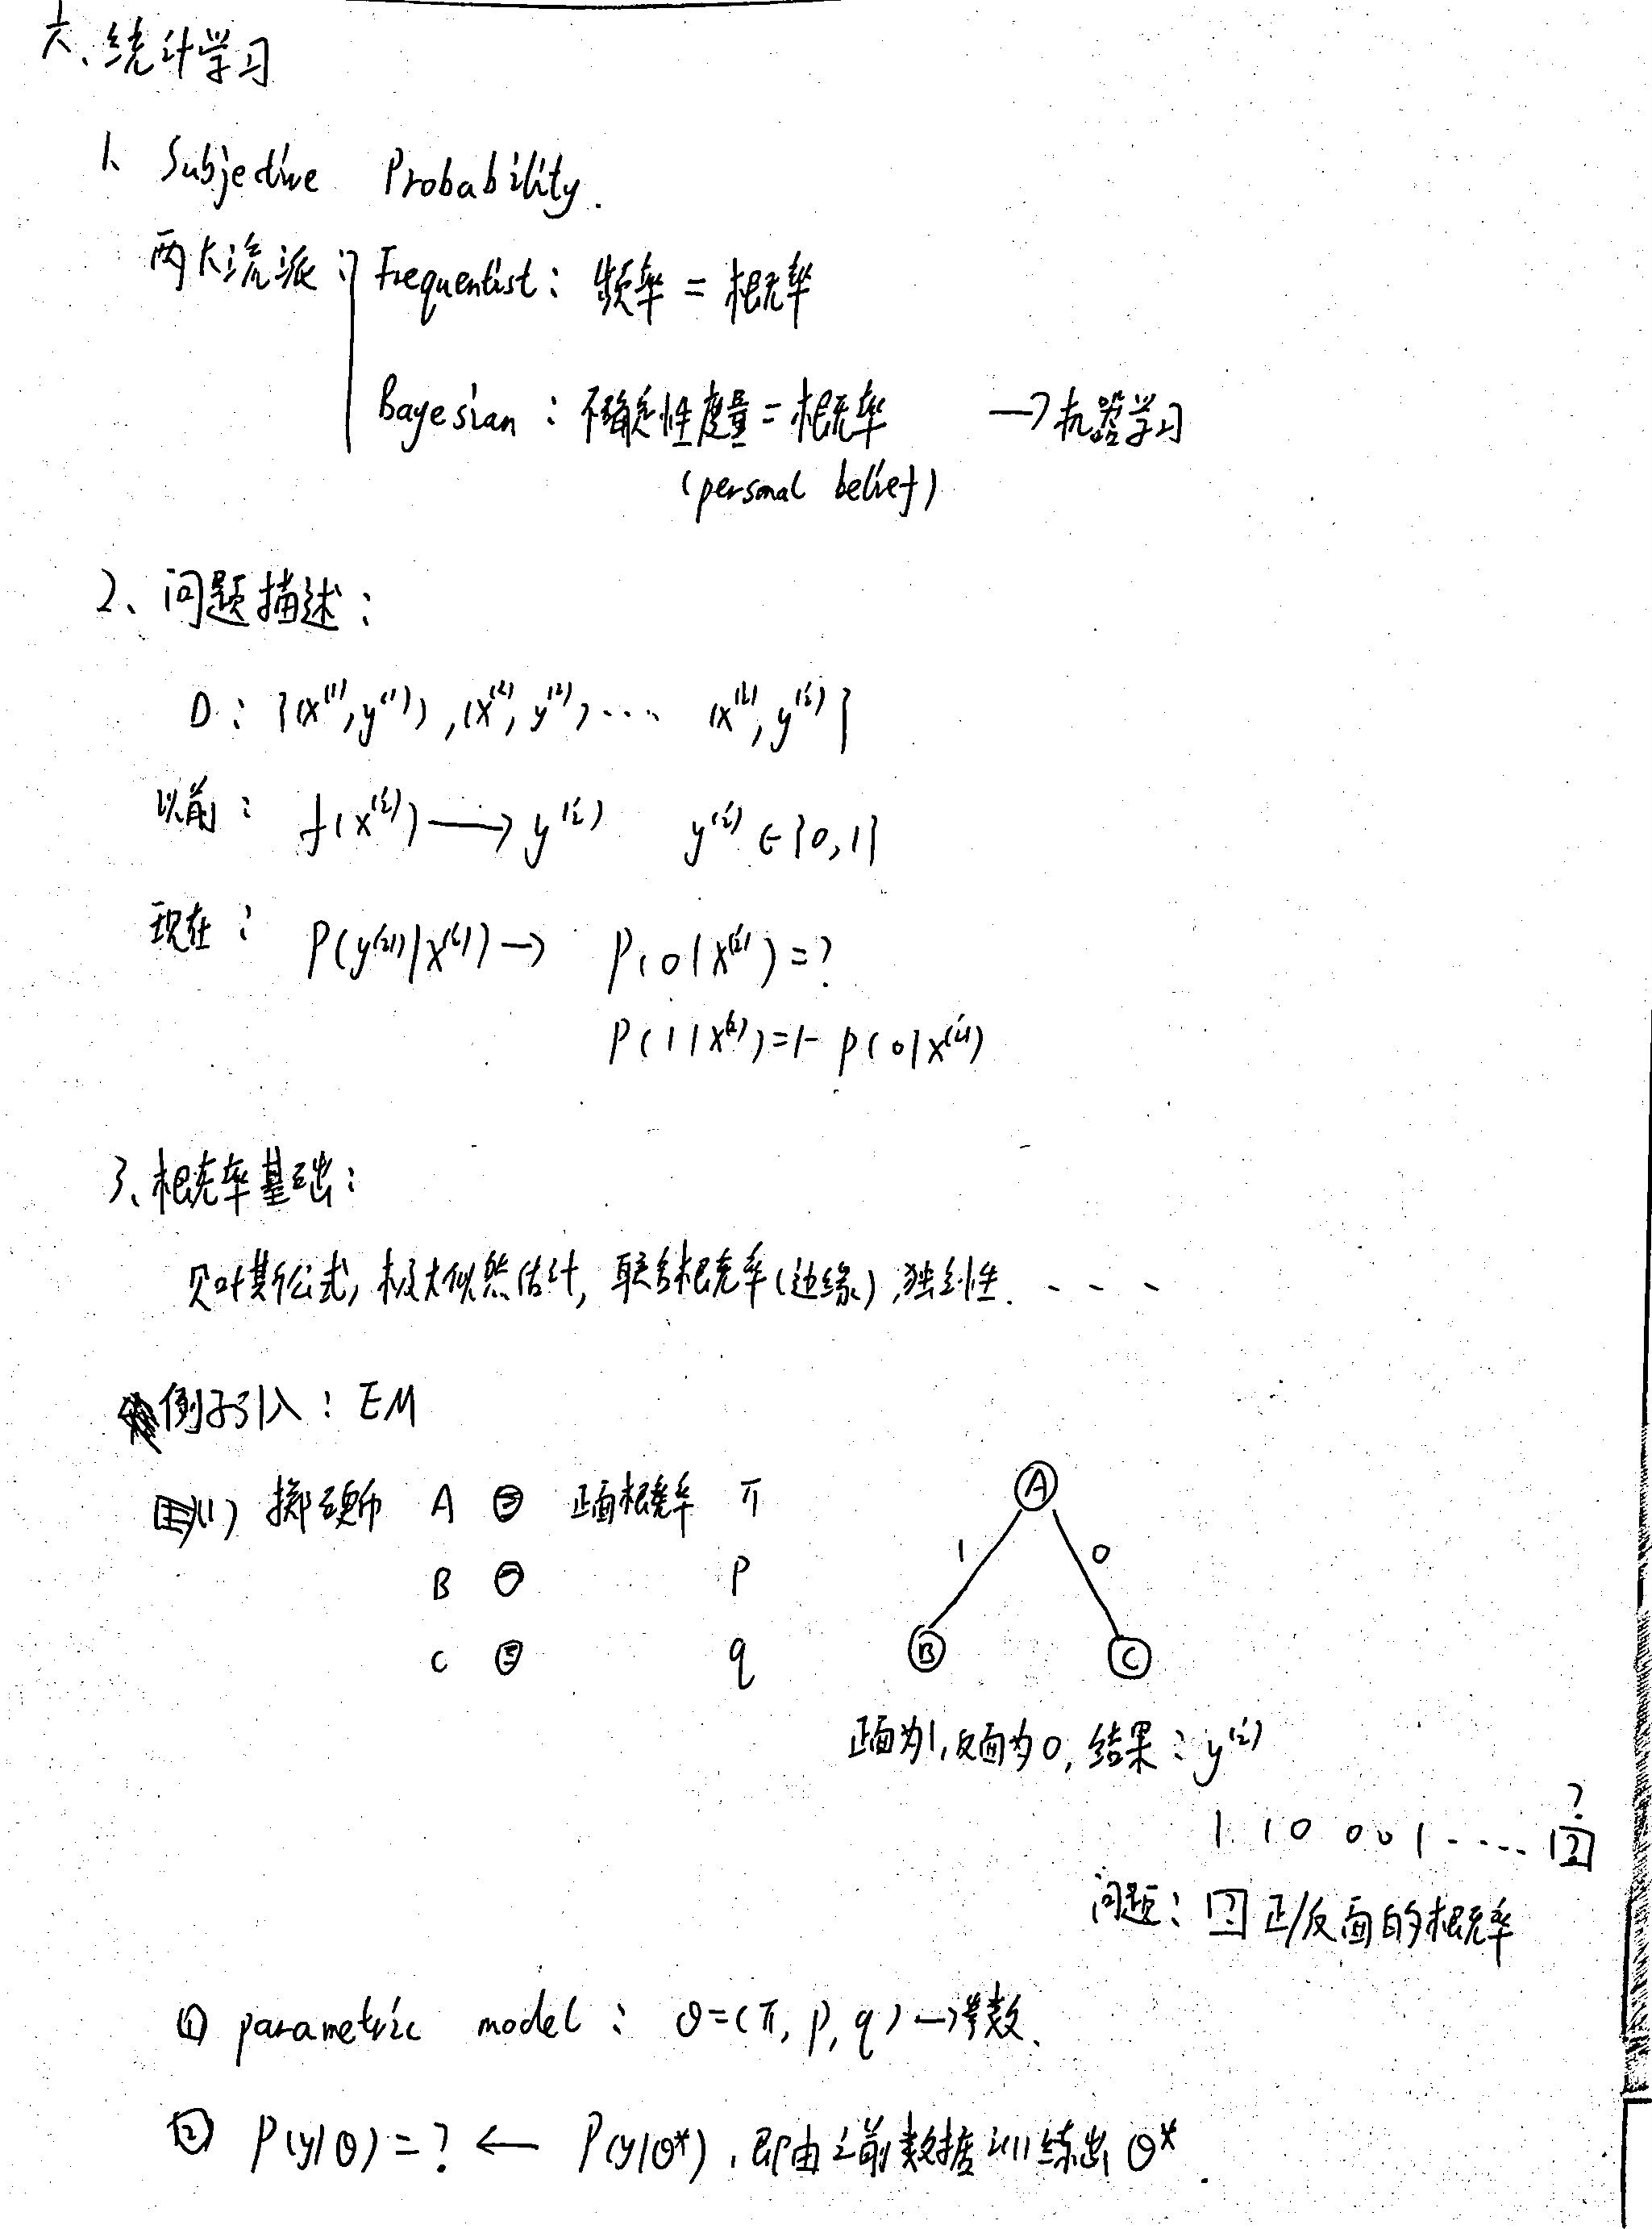 六、统计学习
1、Subjective Probability.
两大流派: Frequentist: 频率 = 概率
Bayesian: 不确定性度量 = 概率 → 机器学习
(personal belief)
2、问题描述:
D: {(x⁽¹⁾, y⁽¹⁾), (x⁽²⁾, y⁽²⁾) ... (x⁽ⁱ⁾, y⁽ⁱ⁾)}
以前: f(x⁽ⁱ⁾) → y⁽ⁱ⁾ y⁽ⁱ⁾ ∈ {0, 1}
现在: P(y⁽ⁱ⁾|x⁽ⁱ⁾) → P(0|x⁽ⁱ⁾) = ?
P(1|x⁽ⁱ⁾) = 1 - P(0|x⁽ⁱ⁾)
3、概率基础:
贝叶斯公式, 极大似然估计, 联合概率(边缘), 独立性. - - -
例子引入: EM
(1) 掷硬币 A 正面概率 π
B p
C q
A
1 0
B C
正面为1, 反面为0, 结果: y⁽ⁱ⁾
?
1 1 0 0 0 1 ···· 1 ?
问题: ? 正/反面的概率
① parametric model: θ = (π, p, q) → 参数.
② P(y|θ) = ? ← P(y|θ*), 即由之前数据训练出 θ*.